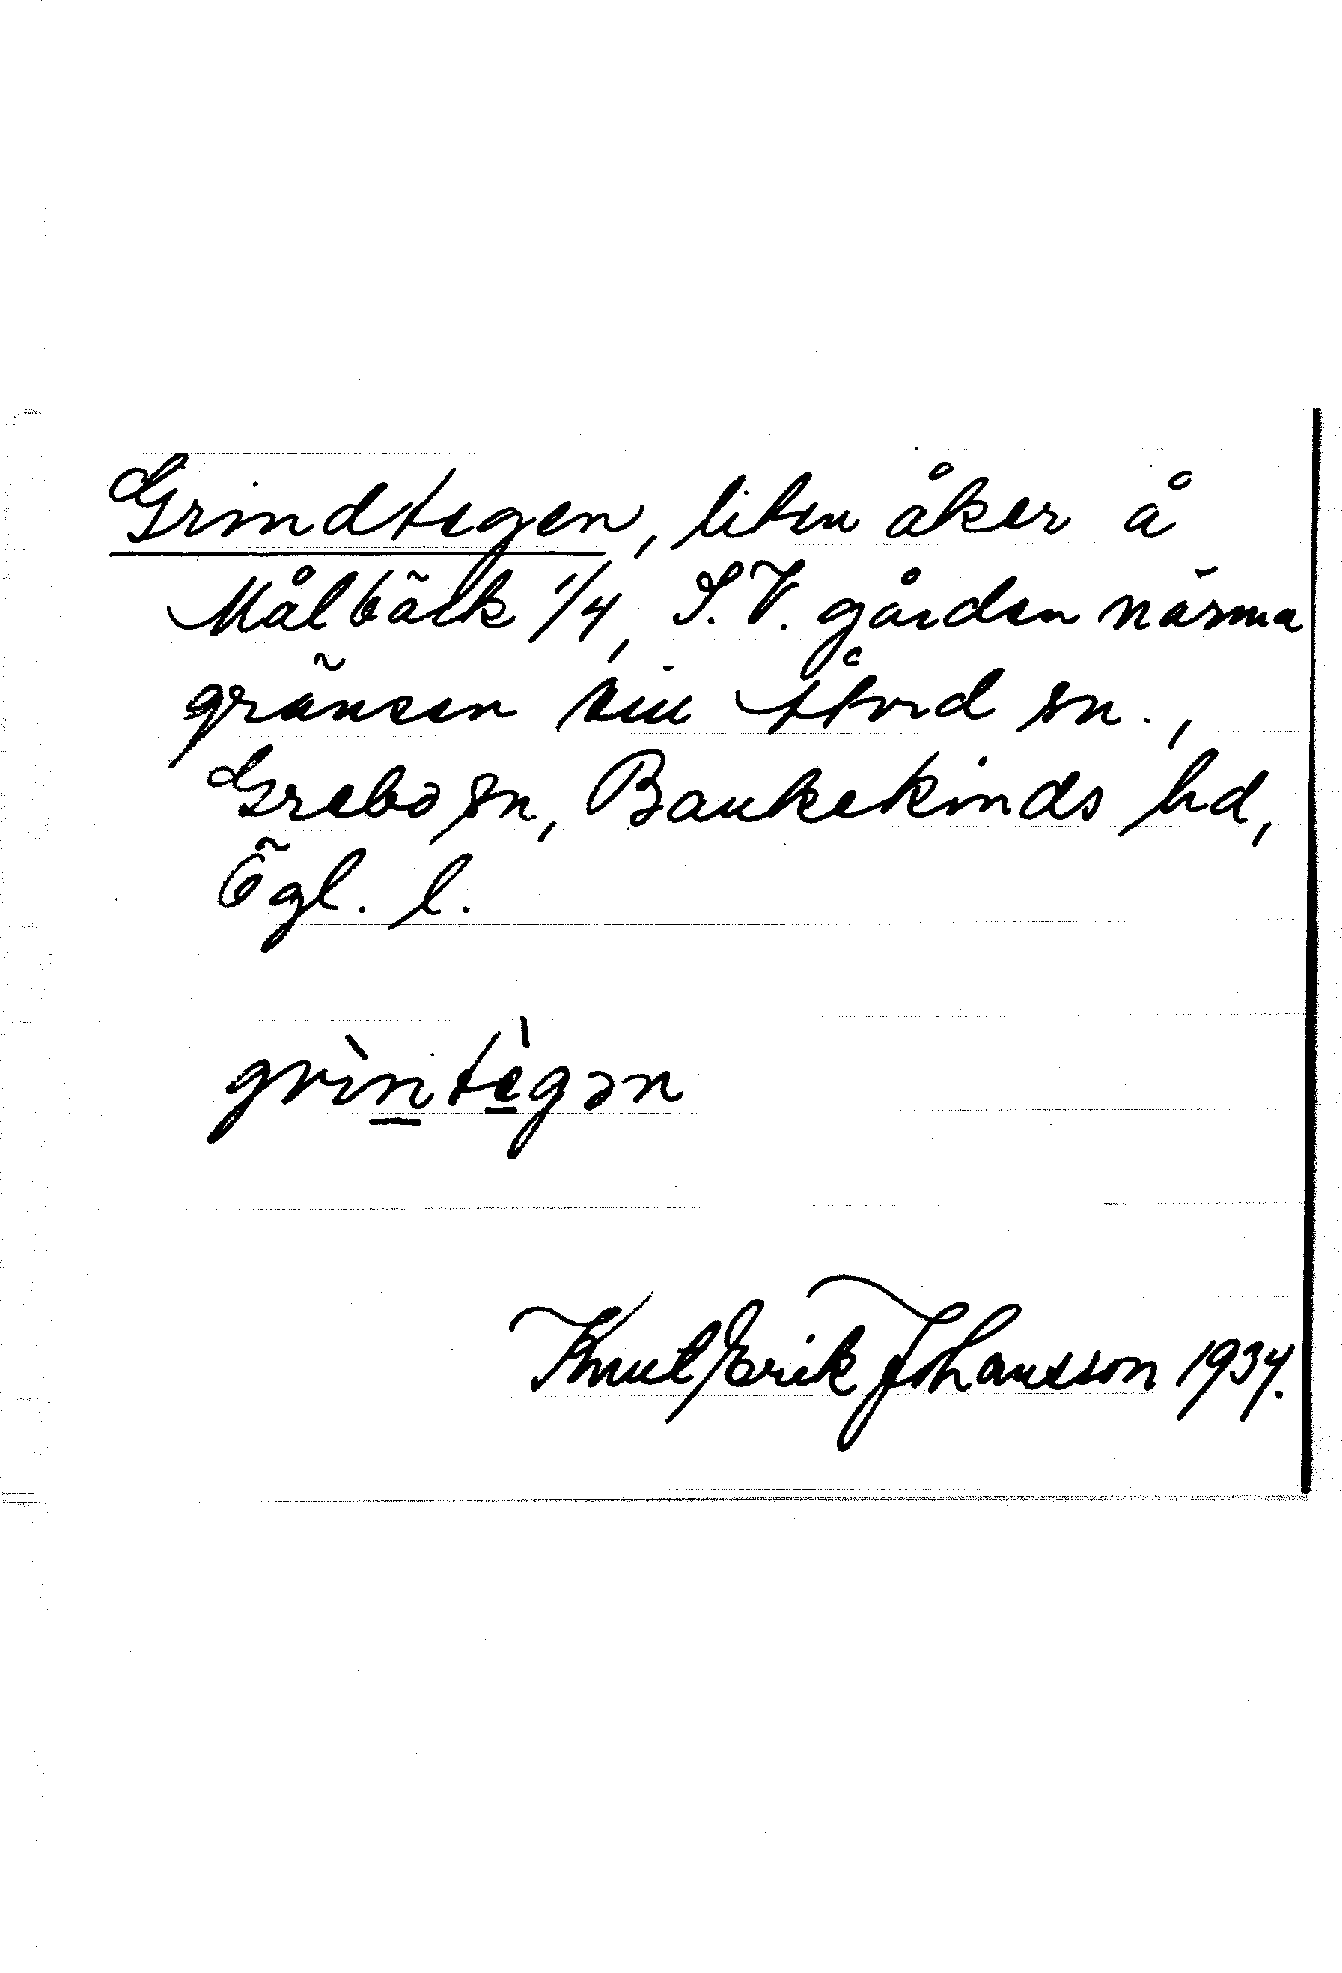 Grindtegen, liten åker å
Målbäck 1/4, S.V. gården närma
gränsen till Åtvid sn.,
Grebo sn, Bankekinds hd,
Ögl. l.
grìntègən
Knut Erik Johansson 1934.